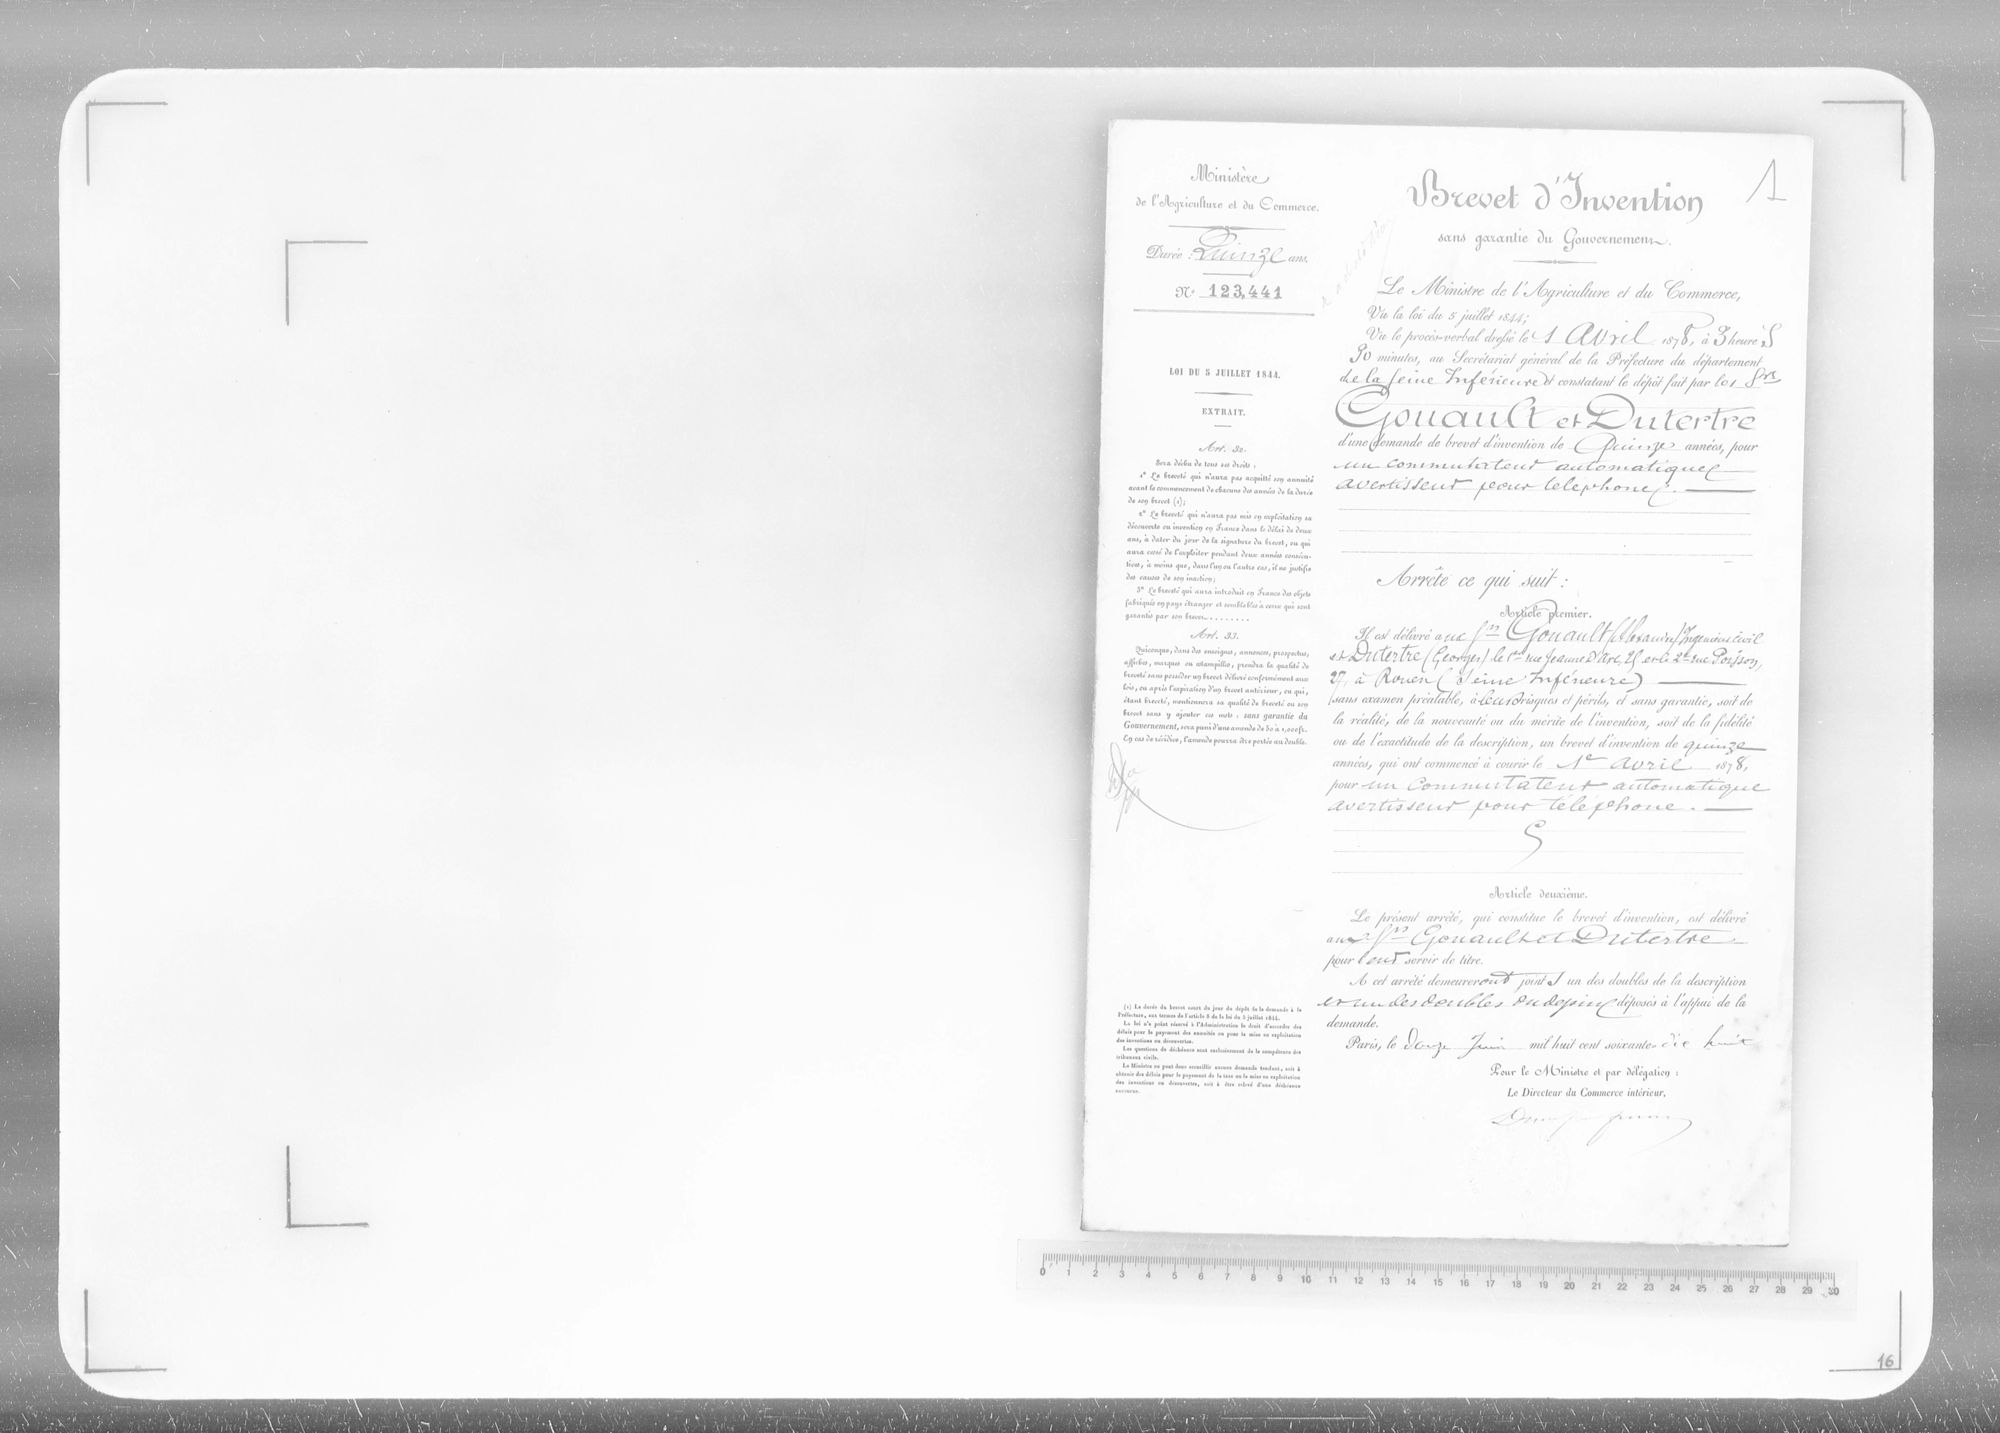 Ministère
de l'Agriculture et du Commerce.
Durée : Quinze ans.
N° 123,441
LOI DU 5 JUILLET 1844.
EXTRAIT.
Art. 32.
Sera déchu de tous ses droits :
1° Le breveté qui n'aura pas acquitté son annuité
avant le commencement de chacune des années de la durée
de son brevet (1);
2° Le breveté qui n'aura pas mis en exploitation sa
découverte ou invention en France dans le délai de deux
ans, à dater du jour de la signature du brevet, ou qui
aura cessé de l'exploiter pendant deux années consécu-
tives, à moins que, dans l'un ou l'autre cas, il ne justifie
des causes de son inaction;
3° Le breveté qui aura introduit en France des objets
fabriqués en pays étranger et semblables à ceux qui sont
garantis par son brevet........
Art. 33.
Quiconque, dans des enseignes, annonces, prospectus,
affiches, marques ou estampilles, prendra la qualité de
breveté sans posséder un brevet délivré conformément aux
lois, ou après l'expiration d'un brevet antérieur, ou qui,
étant breveté, mentionnera sa qualité de breveté ou son
brevet sans y ajouter ces mots : sans garantie du
Gouvernement, sera puni d'une amende de 50 à 1,000 fr.
En cas de récidive, l'amende pourra être portée au double.
(1) La durée du brevet court du jour du dépôt de la demande à la
Préfecture, aux termes de l'article 8 de la loi du 5 juillet 1844.
La loi n'a point réservé à l'Administration le droit d'accorder des
délais pour le payement des annuités ou pour la mise en exploitation
des inventions ou découvertes.
Les questions de déchéance sont exclusivement de la compétence des
tribunaux civils.
Le Ministre ne peut donc accueillir aucune demande tendant, soit à
obtenir des délais pour le payement de la taxe ou la mise en exploitation
des inventions ou découvertes, soit à être relevé d'une déchéance
encourue.
1
Brevet d'Invention
sans garantie du Gouvernement.
Le Ministre de l'Agriculture et du Commerce,
Vu la loi du 5 juillet 1844;
Vu le procès-verbal dressé le 1 Avril 1878, à 3 heures
30 minutes, au Secrétariat général de la Préfecture du département
de la Seine Inférieure et constatant le dépôt fait par les Srs
Gouault et Dutertre
d'une demande de brevet d'invention de Quinze années, pour
un commutateur automatique
avertisseur pour téléphone.
Arrête ce qui suit :
Article premier.
Il est délivré aux Srs Gouault (Alexandre) Ingénieur civil
et Dutertre (Georges) le 1er rue Jeanne d'Arc, 25 et le 2e rue Poisson,
27, à Rouen (Seine Inférieure)
sans examen préalable, à leurs risques et périls, et sans garantie, soit de
la réalité, de la nouveauté ou du mérite de l'invention, soit de la fidélité
ou de l'exactitude de la description, un brevet d'invention de quinze
années, qui ont commencé à courir le 1er avril 1878,
pour un Commutateur automatique
avertisseur pour téléphone.
Article deuxième.
Le présent arrêté, qui constitue le brevet d'invention, est délivré
aux Srs Gouault et Dutertre
pour leur servir de titre.
A cet arrêté demeureront joints un des doubles de la description
et un des doubles du dessin déposés à l'appui de la
demande.
Paris, le douze Juin mil huit cent soixante-dix huit
Pour le Ministre et par délégation :
Le Directeur du Commerce intérieur,
0 1 2 3 4 5 6 7 8 9 10 11 12 13 14 15 16 17 18 19 20 21 22 23 24 25 26 27 28 29 30
16